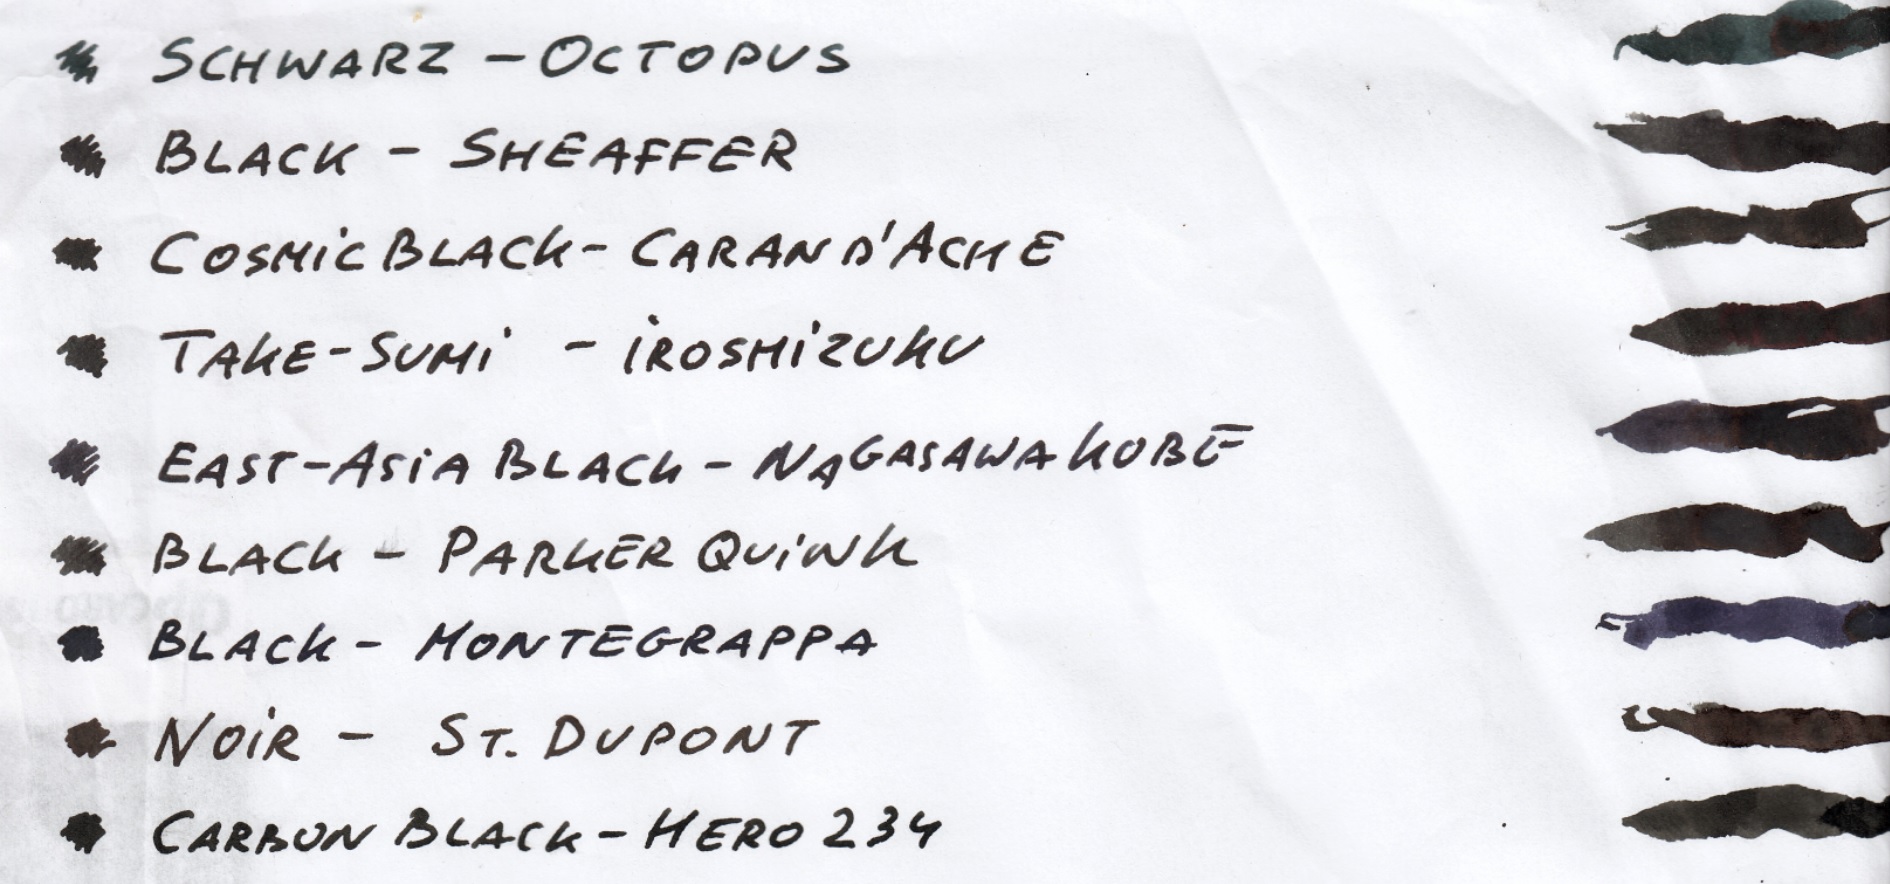 SCHWARZ - OCTOPUS
BLACK - SHEAFFER
COSMIC BLACK - CARAN D'ACHE
TAKE-SUMI - IROSHIZUKU
EAST-ASIA BLACK - NAGASAWA KOBE
BLACK - PARKER QUINK
BLACK - MONTEGRAPPA
NOIR - ST. DUPONT
CARBON BLACK - HERO 234